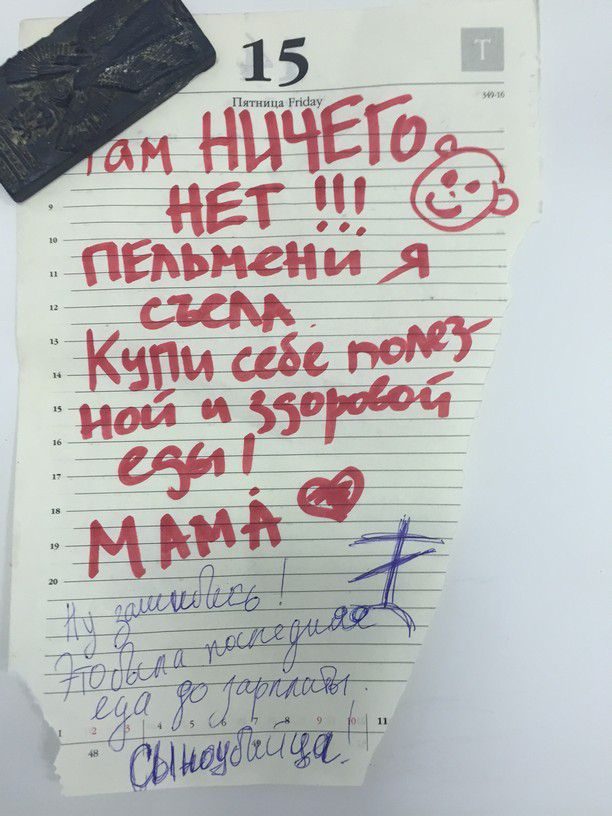 15
T
Пятница Friday
349-16
Там НИЧЕГО
НЕТ !!!
9
10
ПЕЛЬМЕНИ Я
11
12
СЪЕЛА
13
Купи себе полез-
14
ной и здоровой
15
16
еды!
17
18
МАМА
19
20
Ну зашибись!
Это была последняя
еда до зарплаты.
1 2 3 4 5 6 7 8 9 10 11
48
Сыноубийца!